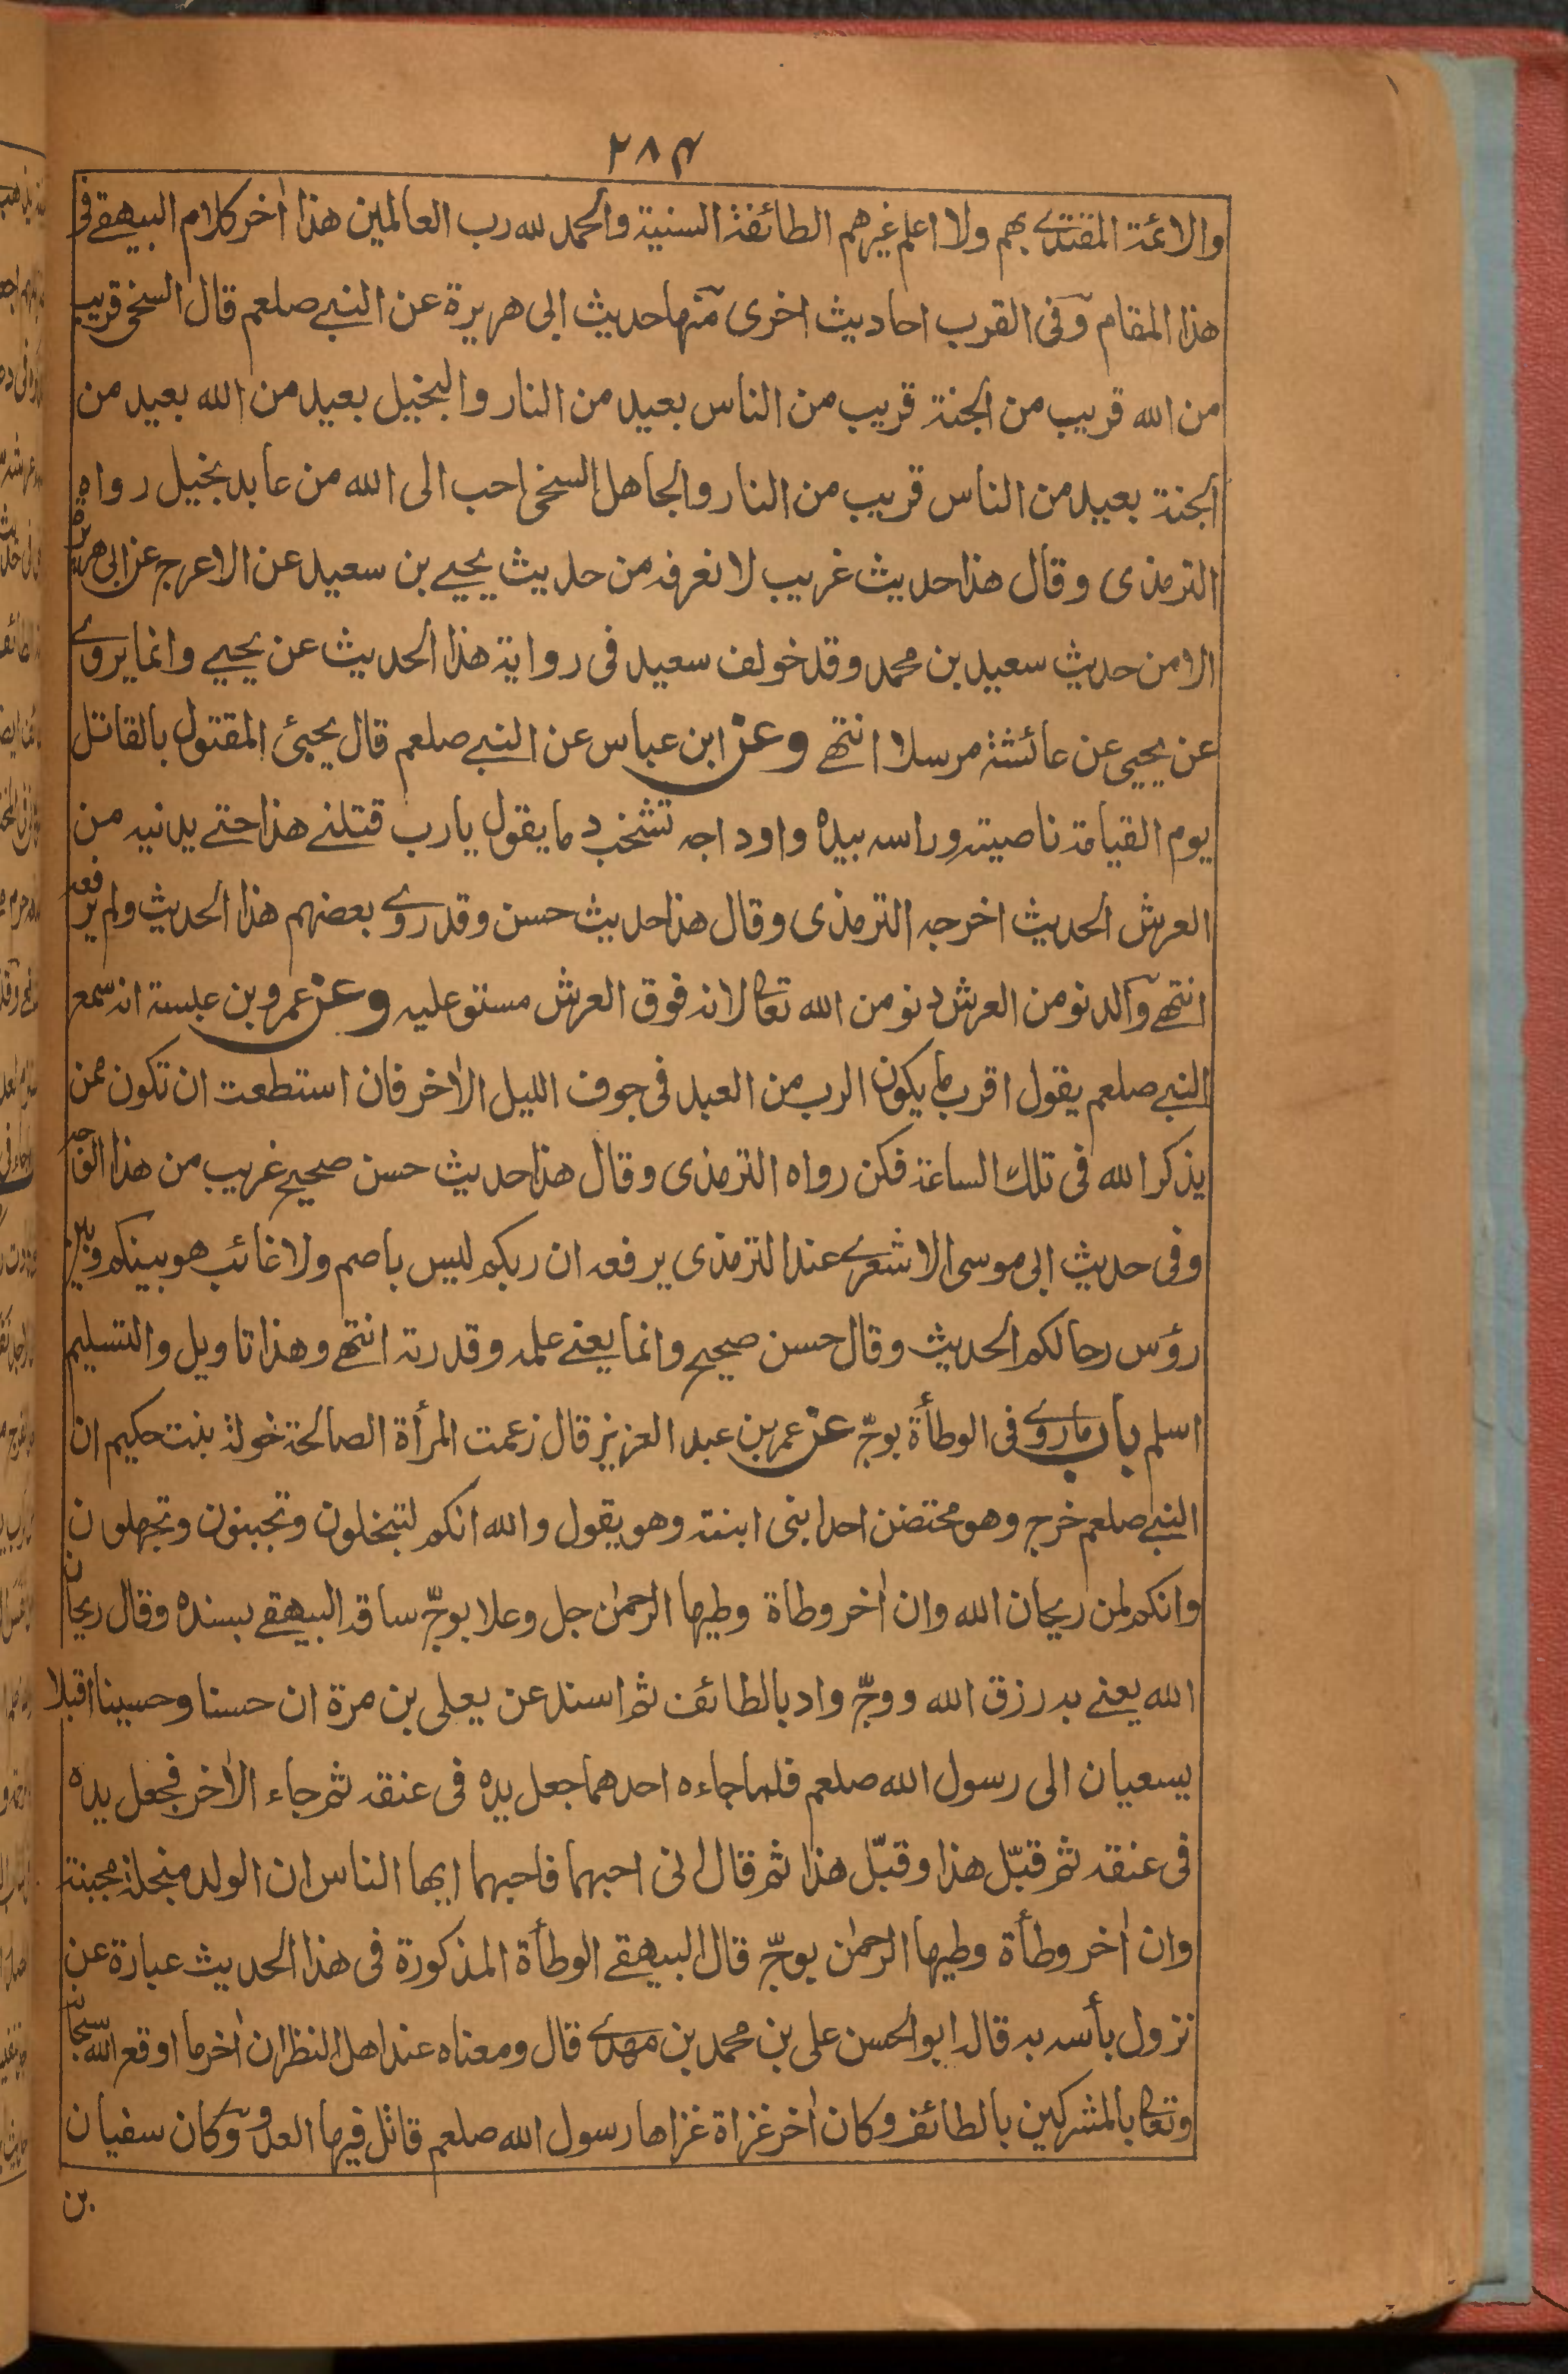 ٢٨٤
والائمة المقتدے بهم ولا اعلم غيرهم الطائفة السنية والحمد لله رب العالمين هذا اٰخر كلام البيهقے فى
هذا المقام وفى القرب احاديث اخرى منها حديث ابى هريرة عن النبے صلعم قال السخى قريب
من الله قريب من الجنة قريب من الناس بعيد من النار والبخيل بعيد من الله بعيد من
الجنة بعيد من الناس قريب من النار والجاهل السخى احب الى الله من عابد بخيل رواه
الترمذى وقال هذا حديث غريب لا نعرفه من حديث يحيے بن سعيد عن الاعرج عن ابى هريرة
الا من حديث سعيد بن محمد وقد خولف سعيد فى رواية هذا الحديث عن يحيے وانما يروے
عن يحيى عن عائشة مرسلا انتهے وعن ابن عباس عن النبے صلعم قال يجئ المقتول بالقاتل
يوم القيامة ناصيته وراسه بيده واوداجه تشخب دما يقول يارب قتلنے هذا حتے يدنيه من
العرش الحديث اخرجه الترمذى وقال هذا حديث حسن وقد روے بعضهم هذا الحديث ولم يرفعه
انتهے والدنو من العرش دنو من الله تعالى لانه فوق العرش مستو عليه وعن عمرو بن عبسة انه سمع
النبے صلعم يقول اقرب ما يكون الرب من العبد فى جوف الليل الاٰخر فان استطعت ان تكون ممن
يذكر الله فى تلك الساعة فكن رواه الترمذى وقال هذا حديث حسن صحيح غريب من هذا الوجه
وفى حديث ابى موسى الاشعرے عند الترمذى يرفعه ان ربكم ليس باصم ولا غائب هو بينكم وبين
رؤس رحالكم الحديث وقال حسن صحيح وانما يعنے علمه وقدرته انتهے وهذا تاويل والتسليم
اسلم باب ما روے فى الوطأة بوجّ عن عمر بن عبد العزيز قال زعمت المرأة الصالحة خولة بنت حكيم ان
النبے صلعم خرج وهو محتضن احد ابنى ابنته وهو يقول والله انكم لتبخلون وتجبنون وتجهلون
وانكم لمن ريحان الله وان اٰخر وطاة وطيها الرحمٰن جل وعلا بوجّ ساقه البيهقے بسنده وقال ريحان
الله يعنے به رزق الله ووجّ واد بالطائف ثم اسند عن يعلى بن مرة ان حسنا وحسينا اقبلا
يسعيان الى رسول الله صلعم فلما جاءه احدهما جعل يده فى عنقه ثم جاء الاٰخر فجعل يده
فى عنقه ثم قبّل هذا وقبّل هذا ثم قال انى احبهما فاحبهما ايها الناس ان الولد مبخلة مجبنة
وان اٰخر وطأة وطيها الرحمٰن بوجّ قال البيهقے الوطأة المذكورة فى هذا الحديث عبارة عن
نزول بأسه به قاله ابو الحسن على بن محمد بن مهدے قال ومعناه عند اهل النظر ان اٰخر ما اوقع الله سبحانه
وتعالى بالمشركين بالطائف وكان اٰخر غزاة غزاها رسول الله صلعم قاتل فيها العدو وكان سفيان
بن